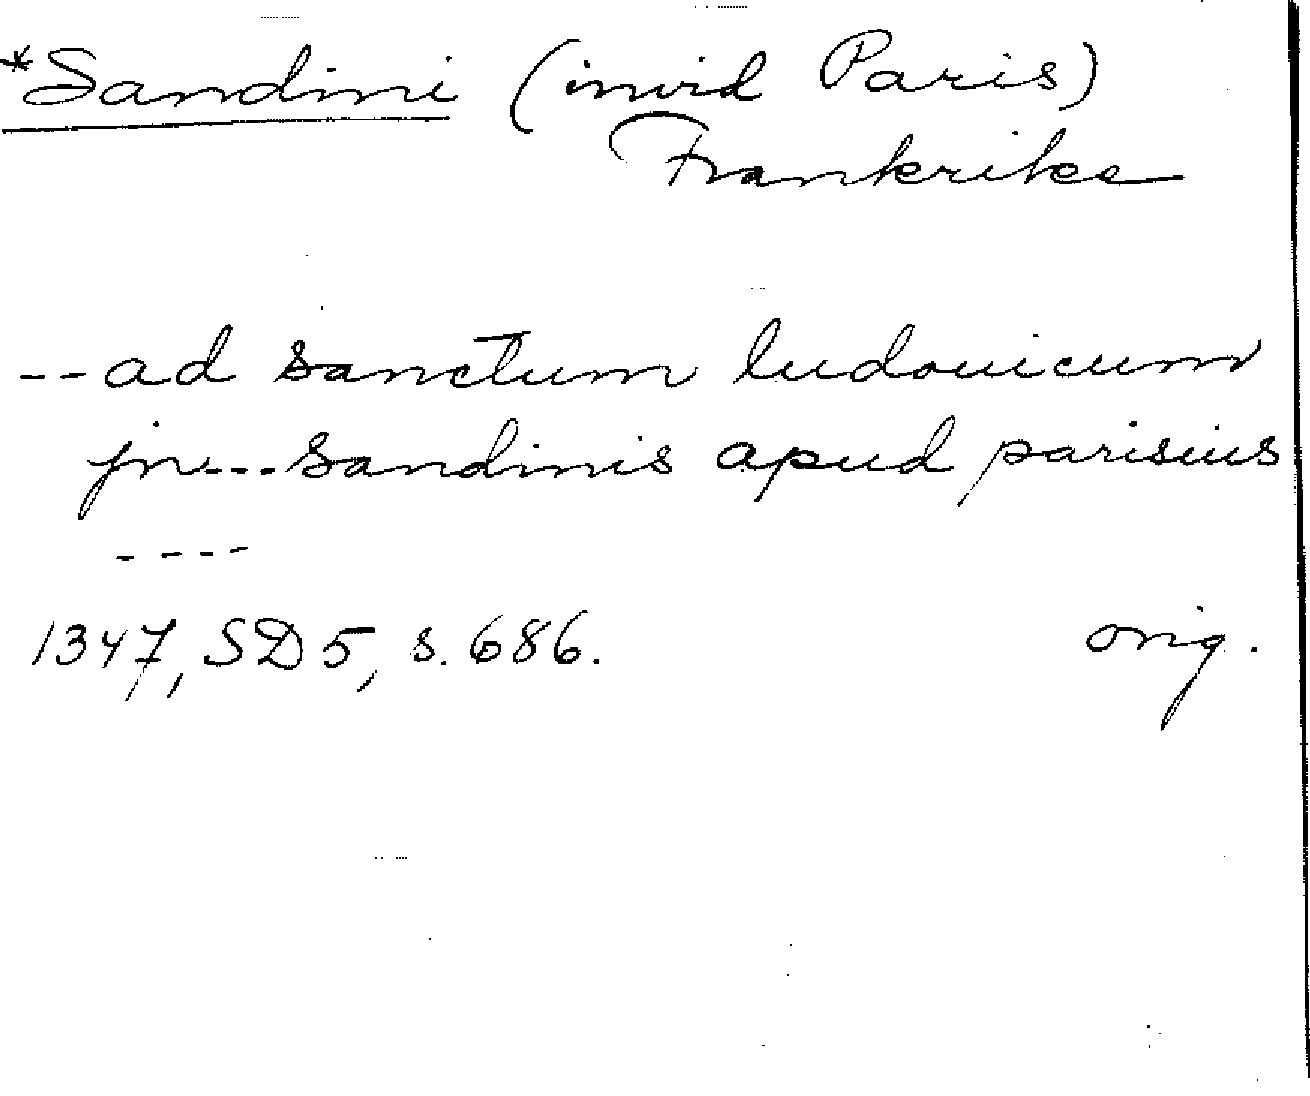 *Sandini (invid Paris)
Frankrike
--ad sanctum ludouicum
jn---sandinis apud parisius
----
1347, SD5, s. 686. orig.